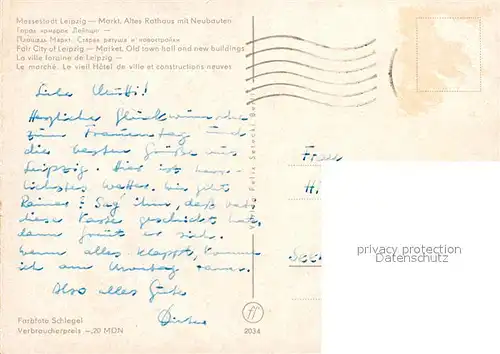 Messestadt Leipzig — Markt. Altes Rathaus mit Neubauten
Город ярмарок Лейпциг —
Площадь Маркт. Старая ратуша и новостройки
Fair City of Leipzig — Market. Old town hall and new buildings
La ville foraine de Leipzig —
Le marché. Le vieil Hôtel de ville et constructions neuves
Liebe Mutti!
Herzliche Glückwünsche
zum Frauentag und
die besten Grüße aus
Leipzig. Hier ist herr-
lichstes Wetter. Wie geht
Rainer? Sag' ihm, daß
diese Karte geschickt hat,
dann freut er sich.
Wenn alles klappt, komme
ich am Montag
Also alles Gute
Dieter
Farbfoto Schlegel
Verbraucherpreis —,20 MDN
Verlag Felix Setecki Ber
2034
Frau
Hi
See
privacy protection
www.ansichtskarten-center.de